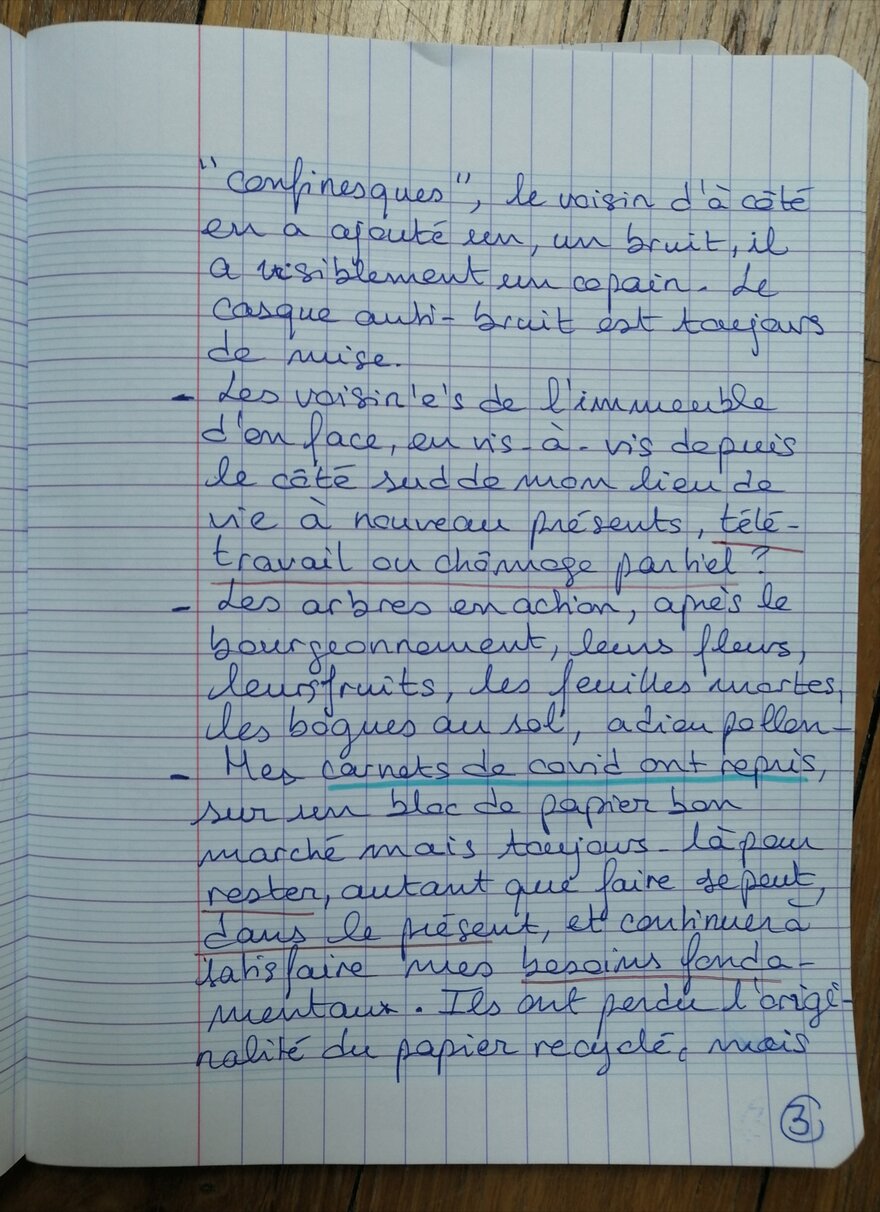 "confinesques", le voisin d'à côté
en a ajouté un, un bruit, il
a visiblement un copain. Le
casque anti-bruit est toujours
de mise.
- Les voisin'e's de l'immeuble
d'en face, en vis-à-vis depuis
le côté sud de mon lieu de
vie à nouveau présents, télé-
travail ou chômage partiel ?
- Les arbres en action, après le
bourgeonnement, leurs fleurs,
leurs fruits, les feuilles mortes,
les bogues au sol, adieu pollen-
- Mes carnets de covid ont repris,
sur un bloc de papier bon
marché mais toujours là pour
rester, autant que faire se peut,
dans le présent, et continuer à
satisfaire mes besoins fonda-
mentaux. Ils ont perdu l'origi-
nalité du papier recyclé, mais
3